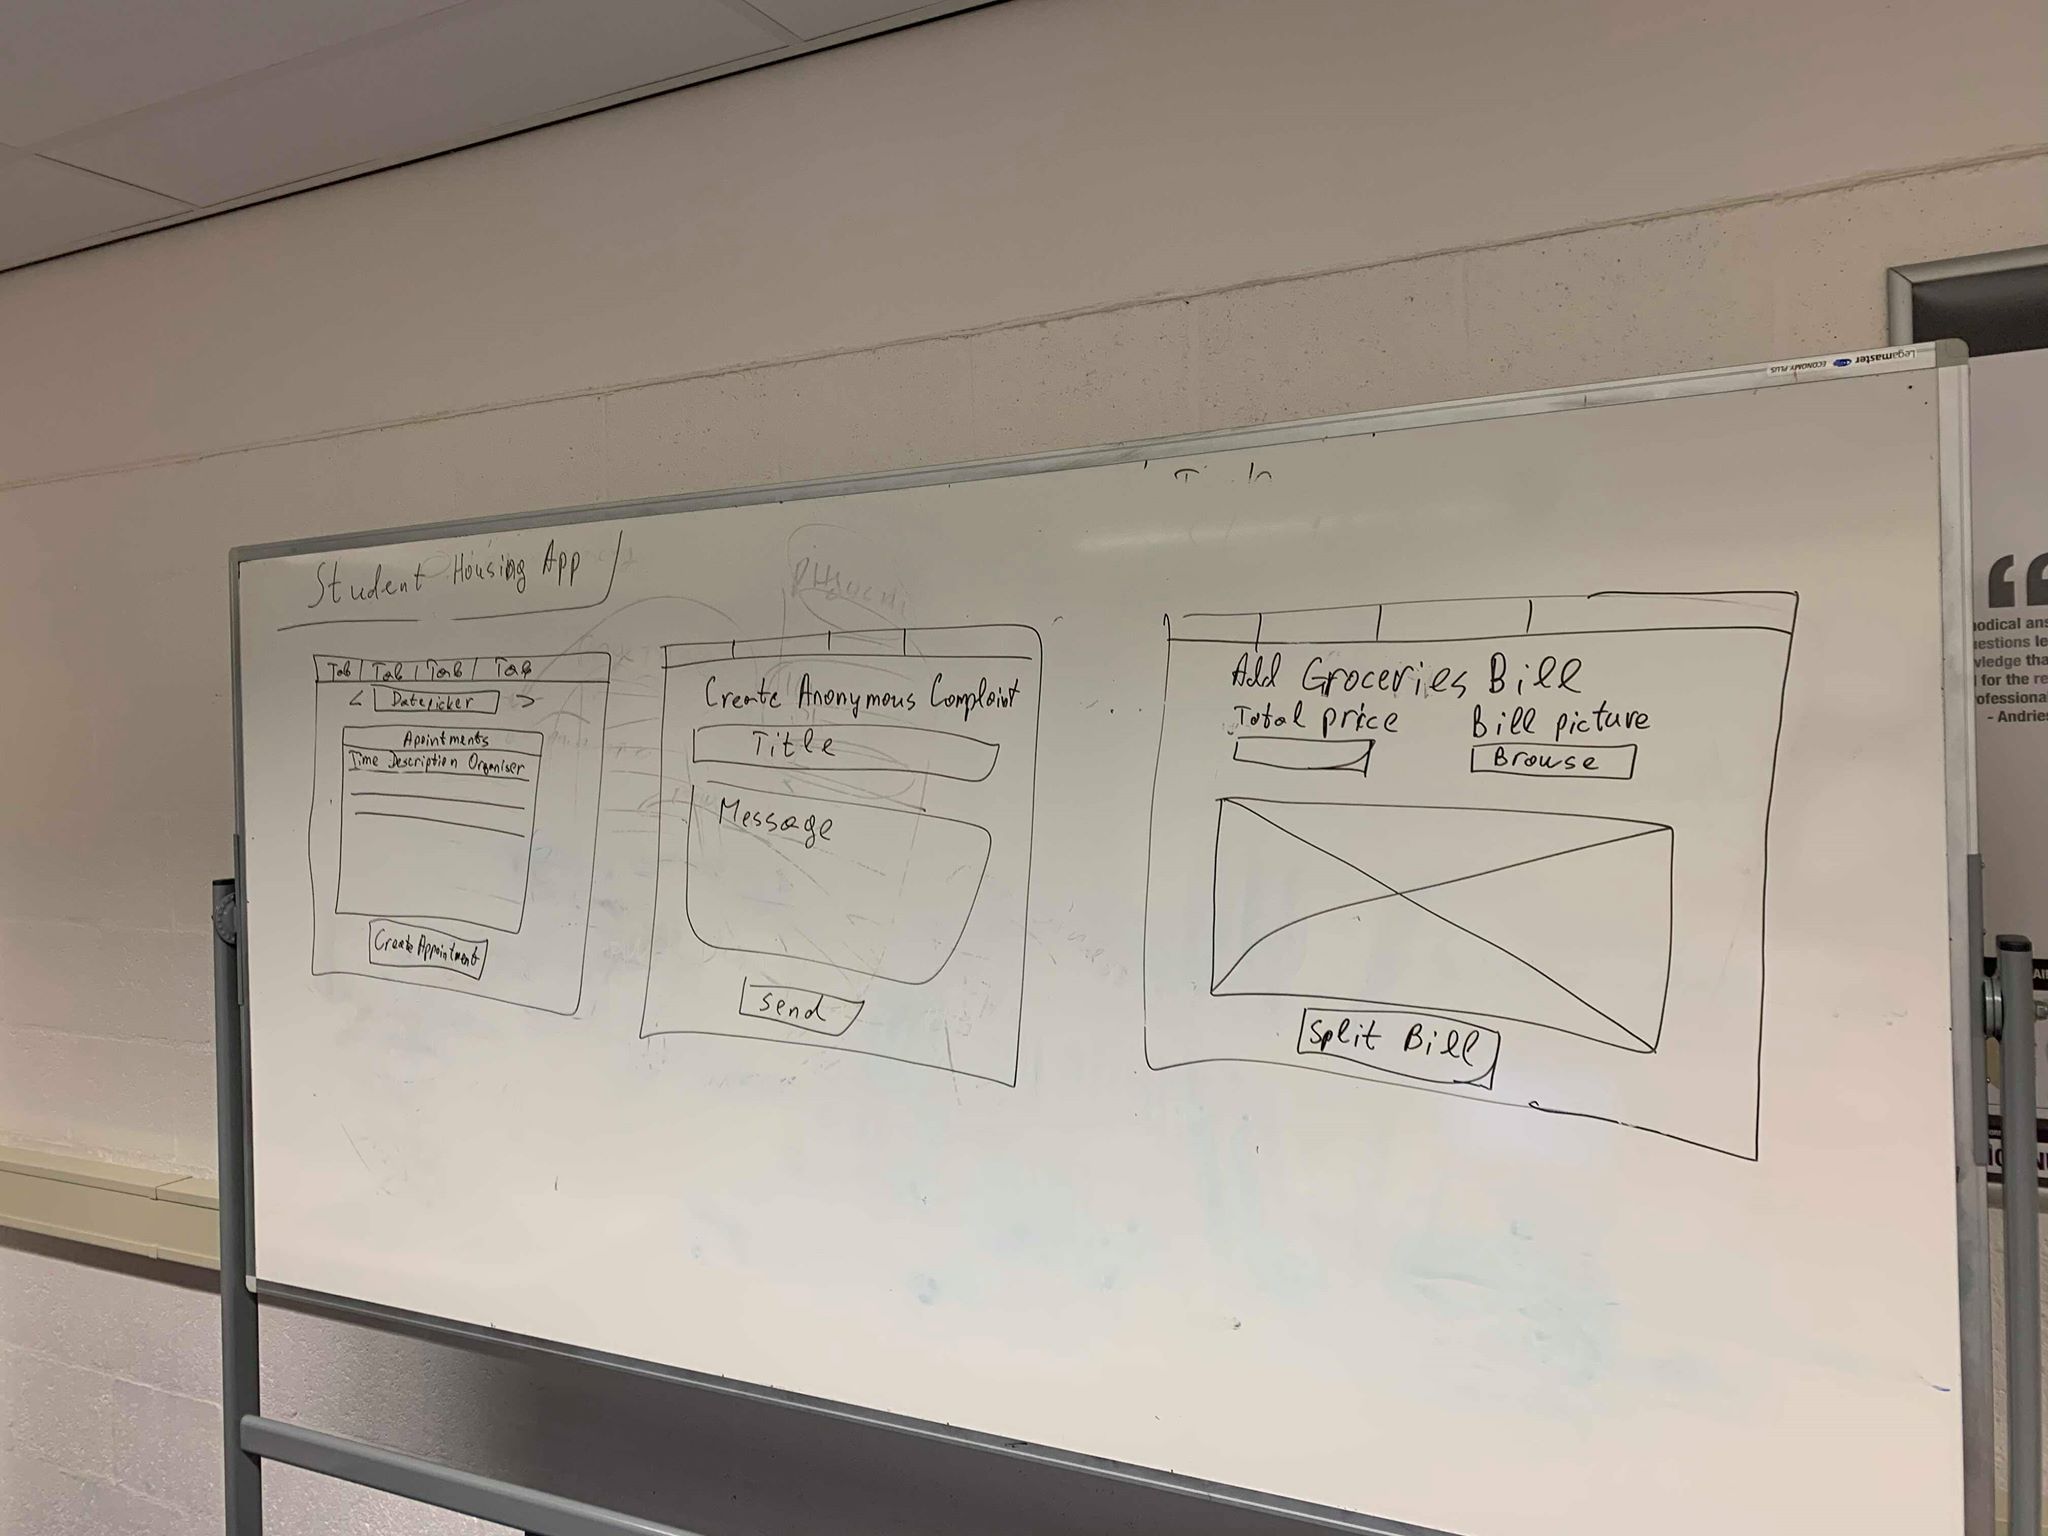 Legamaster ECONOMY PLUS
Student Housing App
Tab Tab Tab Tab
< Datepicker >
Apointments
Time Description Organiser
Create Appointment
Create Anonymous Complaint
Title
Message
Send
Add Groceries Bill
Total price Bill picture
Browse
Split Bill
“
- Andries